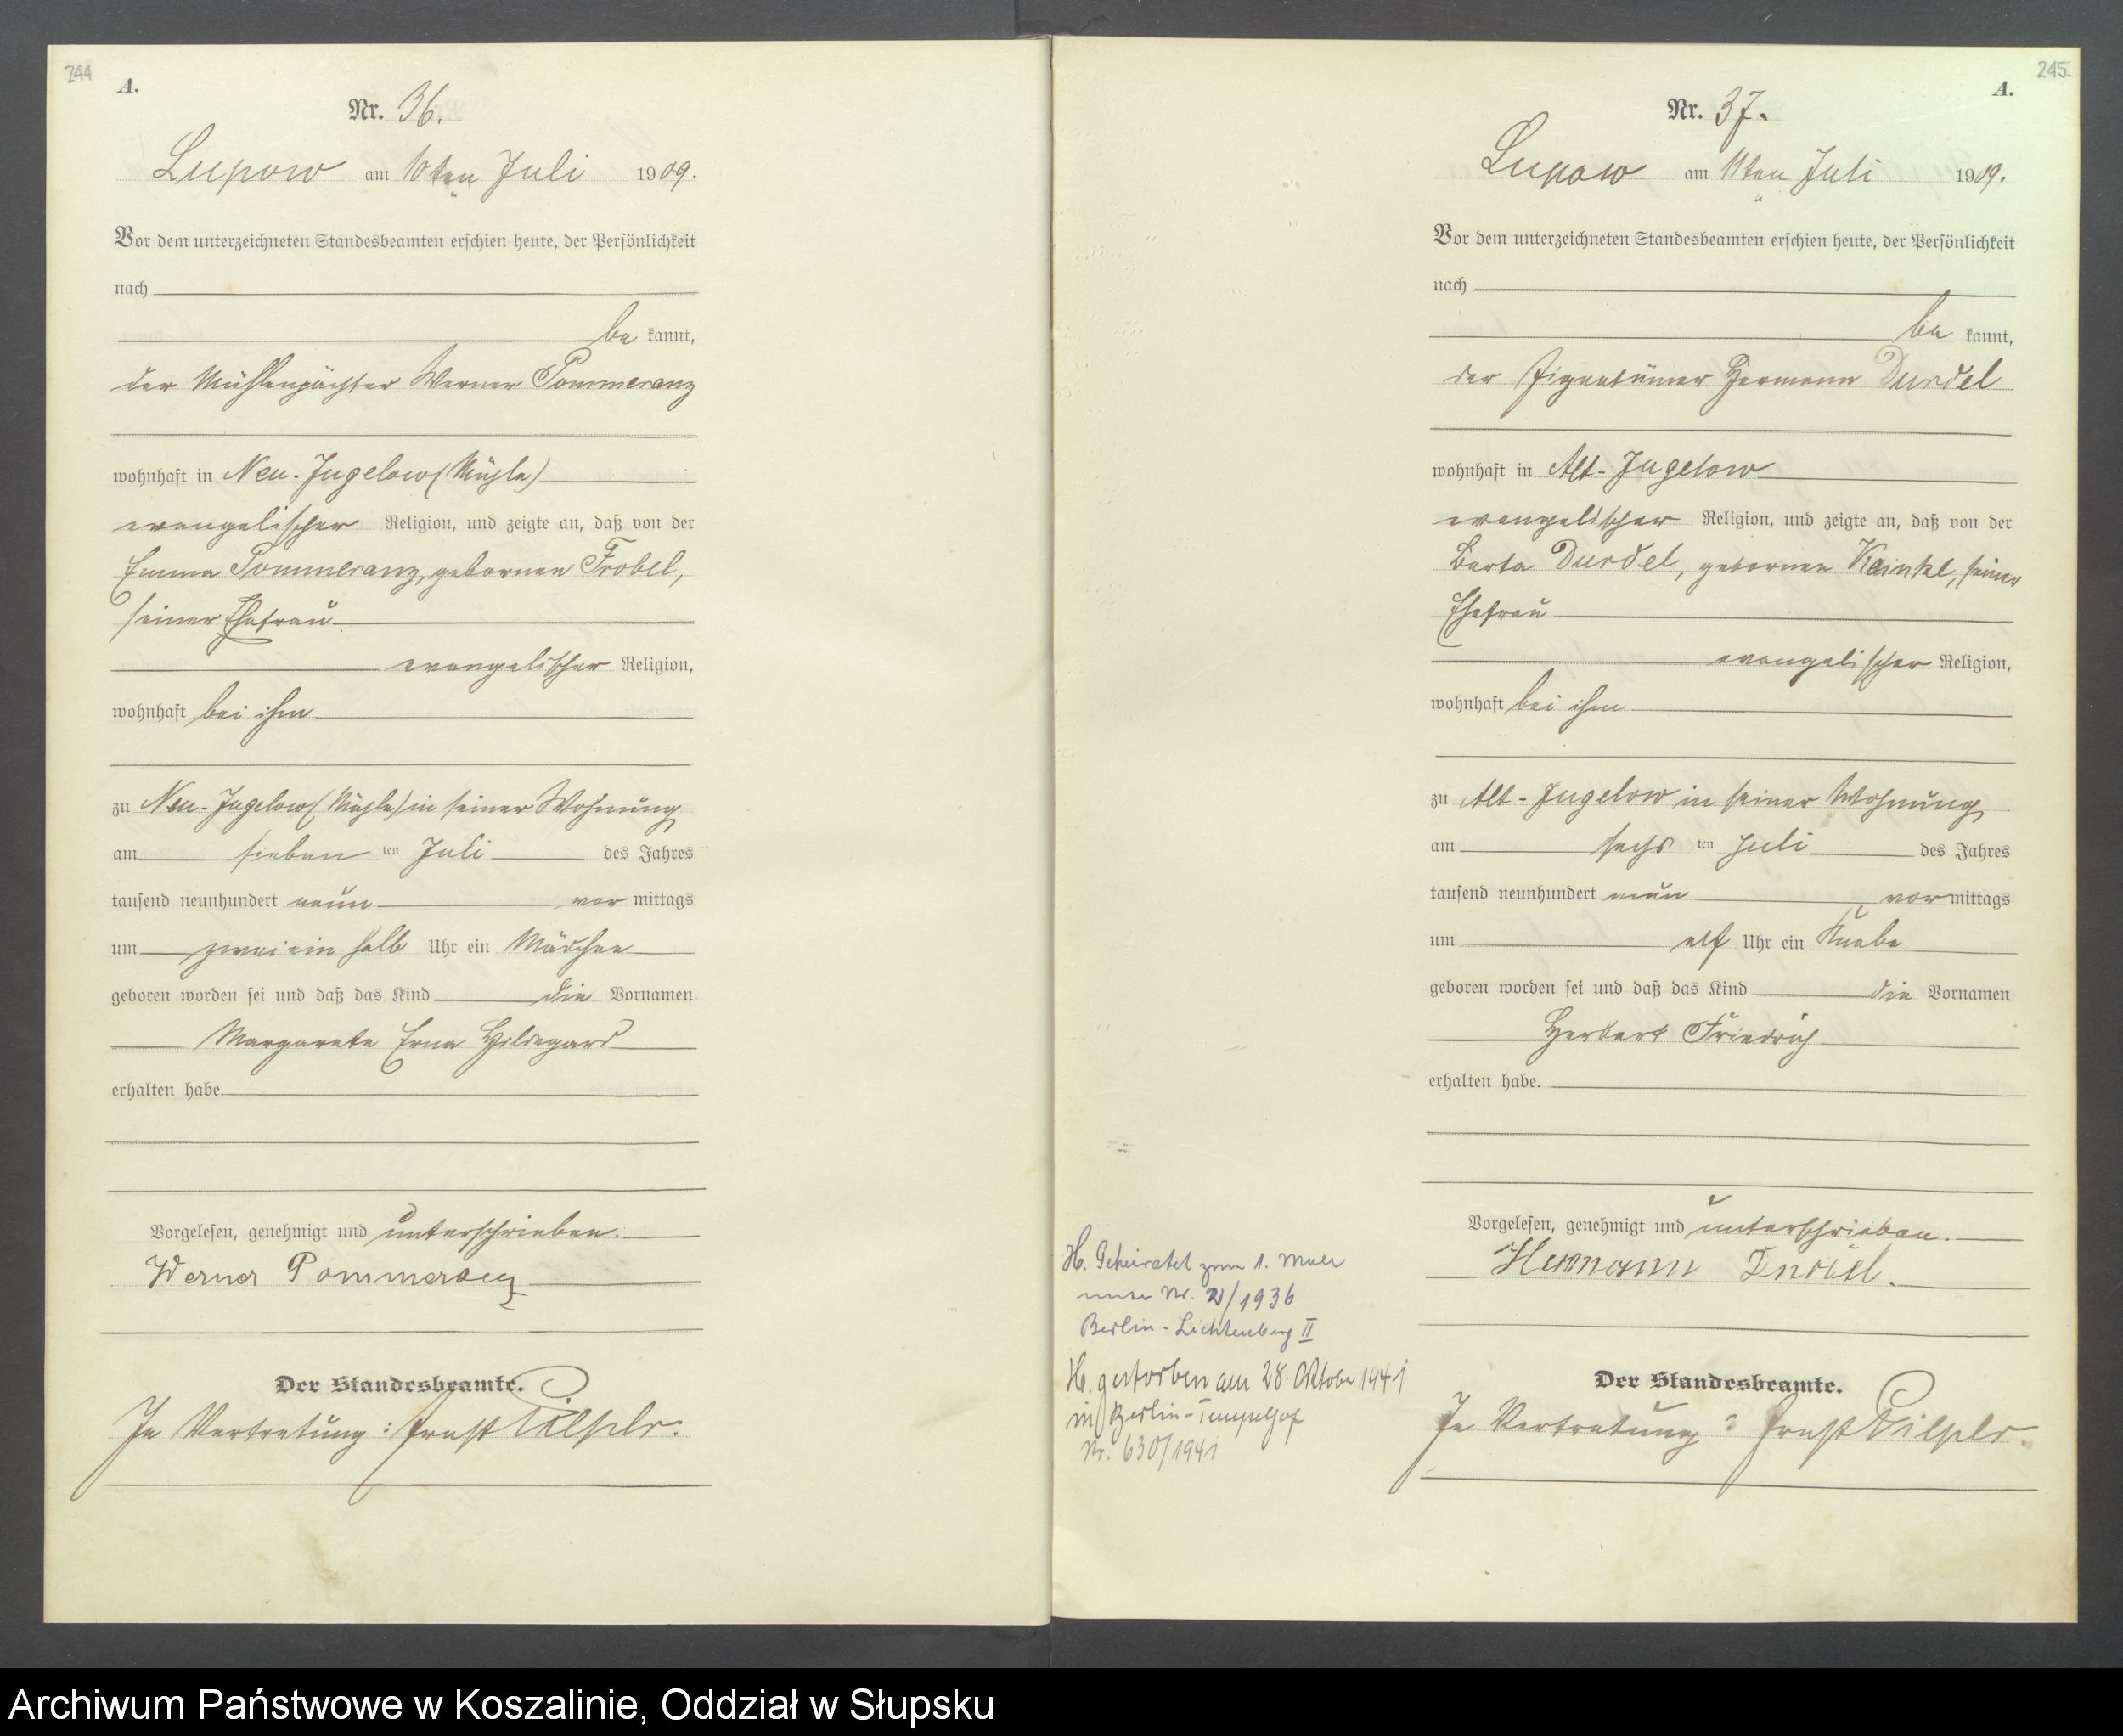 244
A.
Nr. 36.
Lupow am 10ten Juli 1909.
Vor dem unterzeichneten Standesbeamten erschien heute, der Persönlichkeit
nach
be kannt,
der Mühlenpächter Werner Pommeranz
wohnhaft in Neu-Jugelow (Mühle)
evangelischer Religion, und zeigte an, daß von der
Emma Pommeranz, gebornen Frobel,
seiner Ehefrau
evangelischer Religion,
wohnhaft bei ihm
zu Neu-Jugelow (Mühle) in seiner Wohnung
am sieben ten Juli des Jahres
tausend neunhundert neun vor mittags
um zwei ein halb Uhr ein Mädchen
geboren worden sei und daß das Kind die Vornamen
Margarete Erna Hildegard
erhalten habe.
Vorgelesen, genehmigt und unterschrieben.
Werner Pommeranz
Der Standesbeamte.
In Vertretung: Ernst
245.
A.
Nr. 37.
Lupow am 11ten Juli 1909.
Vor dem unterzeichneten Standesbeamten erschien heute, der Persönlichkeit
nach
be kannt,
der Eigentümer Hermann Durdel
wohnhaft in Alt-Jugelow
evangelischer Religion, und zeigte an, daß von der
Berta Durdel, gebornen Kainkel, seiner
Ehefrau
evangelischer Religion,
wohnhaft bei ihm
zu Alt-Jugelow in seiner Wohnung
am sechs ten Juli des Jahres
tausend neunhundert neun vor mittags
um elf Uhr ein Knabe
geboren worden sei und daß das Kind die Vornamen
Herbert Friedrich
erhalten habe.
Vorgelesen, genehmigt und unterschrieben.
Hermann Durdel.
Der Standesbeamte.
In Vertretung: Ernst
H. Geheiratet zum 1. Male
unter Nr. 2/1936
Berlin-Lichtenberg II
H. gestorben am 28. Oktober 1941
in Berlin-Tempelhof
Nr. 630/1941
Archiwum Państwowe w Koszalinie, Oddział w Słupsku